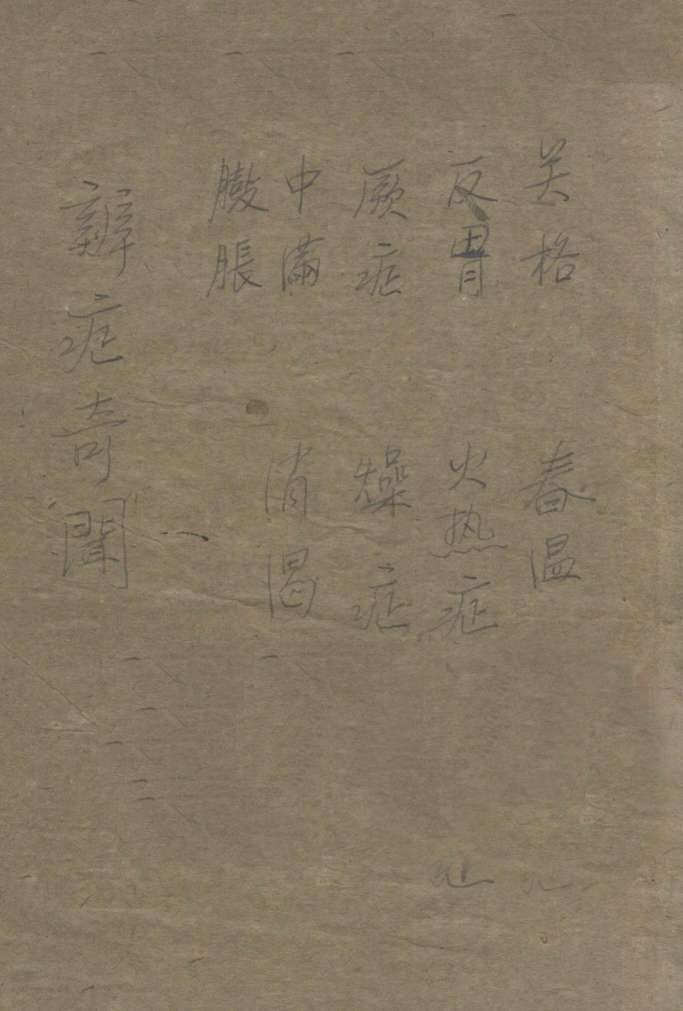 关格
春温
反胃
火热症
厥症
燥症
中满
消渴
臌胀
辨症奇闻